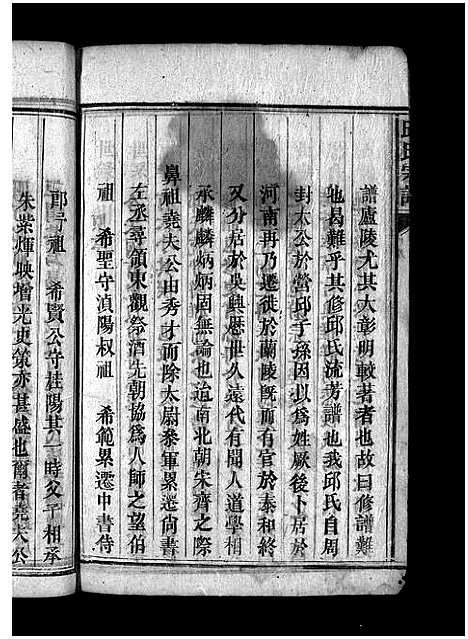 譜廬陵尤其大彰明較著者也故曰修譜難
也曷難乎其修邱氏流芳譜也我邱氏自周
封太公於營邱子孫因以爲姓厥後卜居於
河南再乃遷徙於蘭陵既而有官於泰和終
又分居於吳興歷世久遠代有聞人道學相
承麟麟炳炳固無論也迨南北朝宋齊之際
鼻祖堯夫公由秀才而除太尉參軍累遷尚書
左丞尋領東觀祭酒先朝協爲人師之望伯
祖 希聖守滇陽叔祖 希範累遷中書侍
郎于祖 希賢公守桂陽其一時父子相承
朱紫煇映增光史策亦甚盛也爾者堯夫公